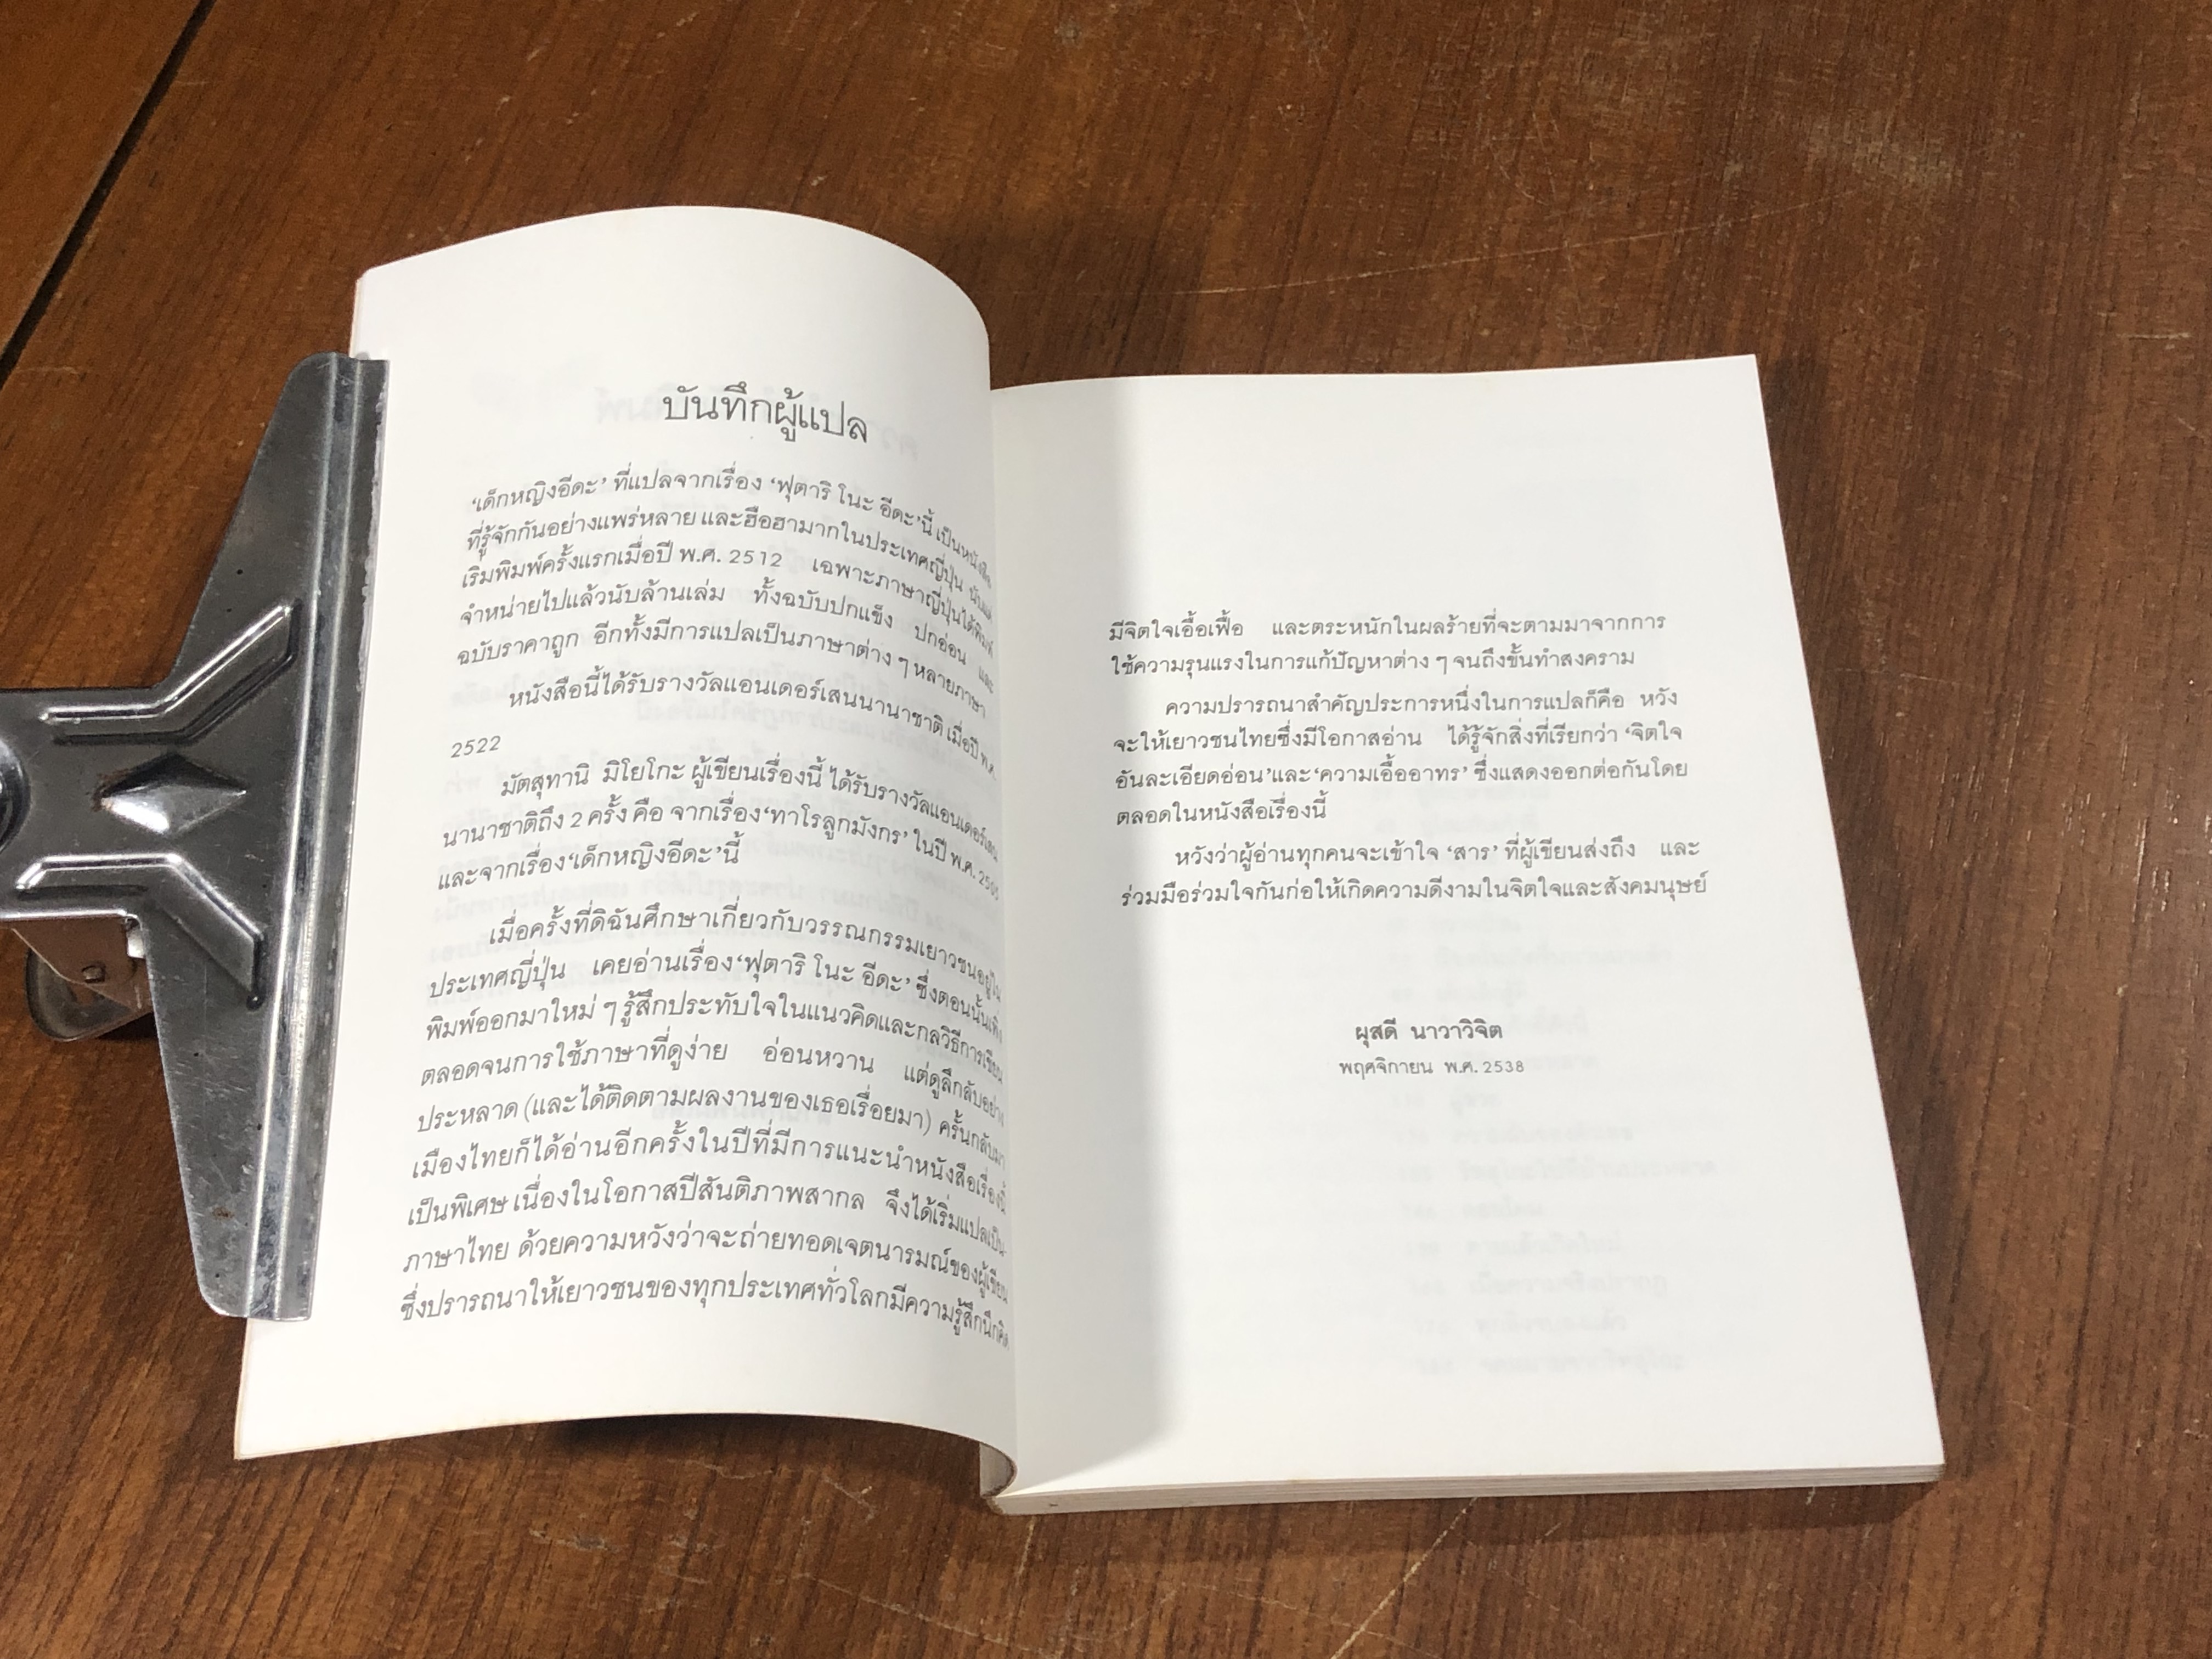 บันทึกผู้แปล
‘เด็กหญิงอีดะ’ ที่แปลจากเรื่อง ‘ฟุตาริ โนะ อีดะ’นี้ เป็นหนังสือ
ที่รู้จักกันอย่างแพร่หลาย และฮือฮามากในประเทศญี่ปุ่น นับแต่
เริ่มพิมพ์ครั้งแรกเมื่อปี พ.ศ. 2512 เฉพาะภาษาญี่ปุ่นได้พิมพ์
จำหน่ายไปแล้วนับล้านเล่ม ทั้งฉบับปกแข็ง ปกอ่อน และ
ฉบับราคาถูก อีกทั้งมีการแปลเป็นภาษาต่าง ๆ หลายภาษา
หนังสือนี้ได้รับรางวัลแอนเดอร์เสนนานาชาติ เมื่อปี พ.ศ.
2522
มัตสุทานิ มิโยโกะ ผู้เขียนเรื่องนี้ ได้รับรางวัลแอนเดอร์เสน
นานาชาติถึง 2 ครั้ง คือ จากเรื่อง‘ทาโรลูกมังกร’ ในปี พ.ศ. 2505
และจากเรื่อง‘เด็กหญิงอีดะ’นี้
เมื่อครั้งที่ดิฉันศึกษาเกี่ยวกับวรรณกรรมเยาวชนอยู่ใน
ประเทศญี่ปุ่น เคยอ่านเรื่อง‘ฟุตาริ โนะ อีดะ’ ซึ่งตอนนั้นเพิ่ง
พิมพ์ออกมาใหม่ ๆ รู้สึกประทับใจในแนวคิดและกลวิธีการเขียน
ตลอดจนการใช้ภาษาที่ดูง่าย อ่อนหวาน แต่ดูลึกลับอย่าง
ประหลาด (และได้ติดตามผลงานของเธอเรื่อยมา) ครั้นกลับมา
เมืองไทยก็ได้อ่านอีกครั้งในปีที่มีการแนะนำหนังสือเรื่องนี้
เป็นพิเศษ เนื่องในโอกาสปีสันติภาพสากล จึงได้เริ่มแปลเป็น
ภาษาไทย ด้วยความหวังว่าจะถ่ายทอดเจตนารมณ์ของผู้เขียน
ซึ่งปรารถนาให้เยาวชนของทุกประเทศทั่วโลกมีความรู้สึกนึกคิด
มีจิตใจเอื้อเฟื้อ และตระหนักในผลร้ายที่จะตามมาจากการ
ใช้ความรุนแรงในการแก้ปัญหาต่าง ๆ จนถึงขั้นทำสงคราม
ความปรารถนาสำคัญประการหนึ่งในการแปลก็คือ หวัง
จะให้เยาวชนไทยซึ่งมีโอกาสอ่าน ได้รู้จักสิ่งที่เรียกว่า ‘จิตใจ
อันละเอียดอ่อน’และ‘ความเอื้ออาทร’ ซึ่งแสดงออกต่อกันโดย
ตลอดในหนังสือเรื่องนี้
หวังว่าผู้อ่านทุกคนจะเข้าใจ ‘สาร’ ที่ผู้เขียนส่งถึง และ
ร่วมมือร่วมใจกันก่อให้เกิดความดีงามในจิตใจและสังคมมนุษย์
ผุสดี นาวาวิจิต
พฤศจิกายน พ.ศ. 2538